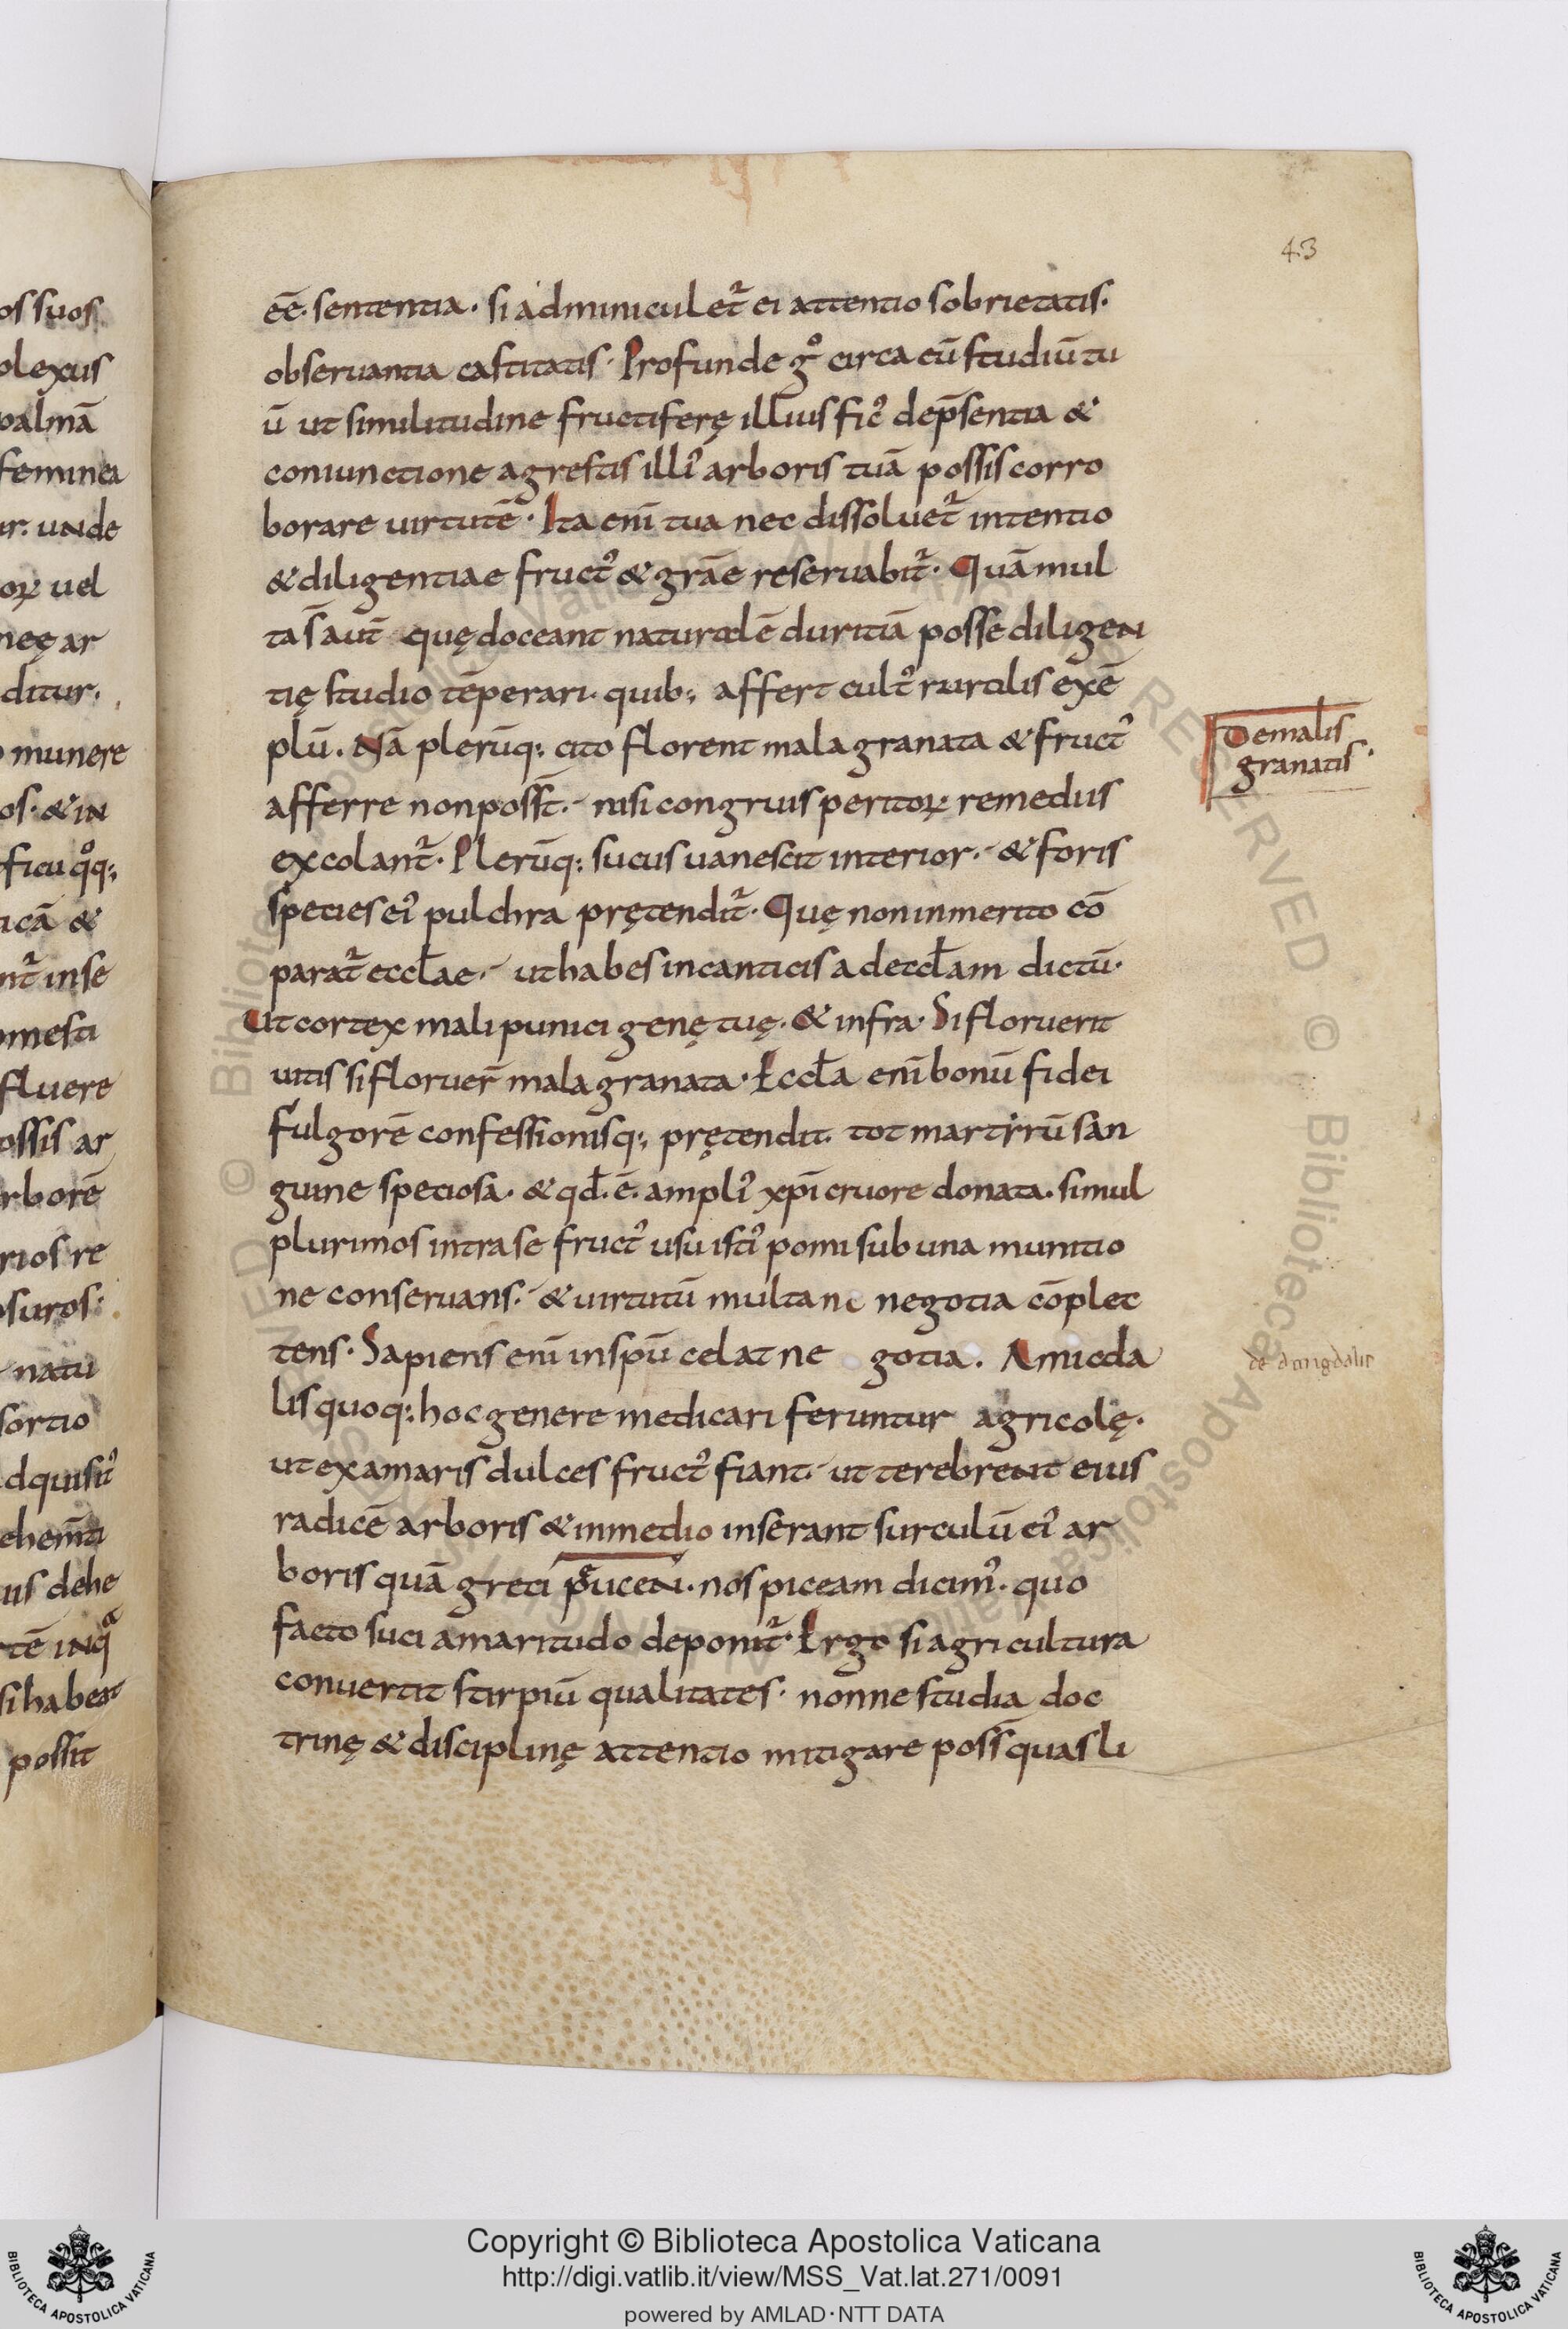 43
eē· sententia· si adminiculet᷑ ei attentio sobrietatis·
obseruantia castitatis· Profunde gͦ circa eū studiū tu
ū ut similitudine fructiferę illius fic᾽ dep̄sentia &
coniunctione agrestis illi᾽ arboris tuā possis corro
borare uirtutē· Ita eni̅ tua nec dissoluet᷑ intentio
& diligentiae fruct᾽ & gr̄ae reseruabit᷑· Quā mul
ta s̄ aut̄ quę doceant naturalē duritiā posse diligen
tię studio tēperari· quib; affert cult᾽ ruralis exē
plū. Nā plerūq; cito florent mala granata & fruct᾽
afferre non poss̄t· nisi congruis peritoꝝ remediis
excolant᷑· Plerūq; sucus uanescit interior· & foris
species ei᾽ pulchra prętendit᷑· Quę non inmerito cō
parat᷑ eccl̄ae· ut habes in canticis ad eccl̄am dictū·
Ut cortex mali punici genę tuę· & infra· Si floruerit
uitis si floruer̄ mala granata· Eccl̄a eni̅ bonū fidei
fulgorē confessionisq; prętendit· tot martyrū san
guine speciosa· & qd̄· ē· ampli᾽ xp̄i cruore donata· simul
plurimos intra se fruct᾽ usu isti᾽ pomi sub una munitio
ne conseruans· & uirtutū multa ne negotia cōplec
tens· Sapiens eni̅ in sp̄u celat ne gotia. Amicda
lis quoq; hoc genere medicari feruntur agricolę·
ut ex amaris dulces fruct᾽ fiant· ut terebrent eius
radicē arboris & in medio inserant surculū ei᾽ ar
boris quā greci peucen· nos piceam dicim᾽· quo
facto suci amaritudo deponit᷑· Ergo si agri cultura
conuertit stirpiū qualitates· nonne studia doc
trinę & disciplinę attentio mitigare poss̄ quasli
De malis
granatis·
de amigdalis
os suos
olexus
palmā
feminea
ur. unde
oꝝ uel
neę ar
ditur.
munere
os· & in
ficu qͦq;
icā &
nt᷑ in se
mesti
fluere
ossis ar
rborē
rios re
suros·
natu
sortio
dquisit᾽
tē inqͣ
si habeat
possit
Copyright © Biblioteca Apostolica Vaticana
http://digi.vatlib.it/view/MSS_Vat.lat.271/0091
powered by AMLAD·NTT DATA
BIBLIOTECA APOSTOLICA VATICANA
BIBLIOTECA APOSTOLICA VATICANA